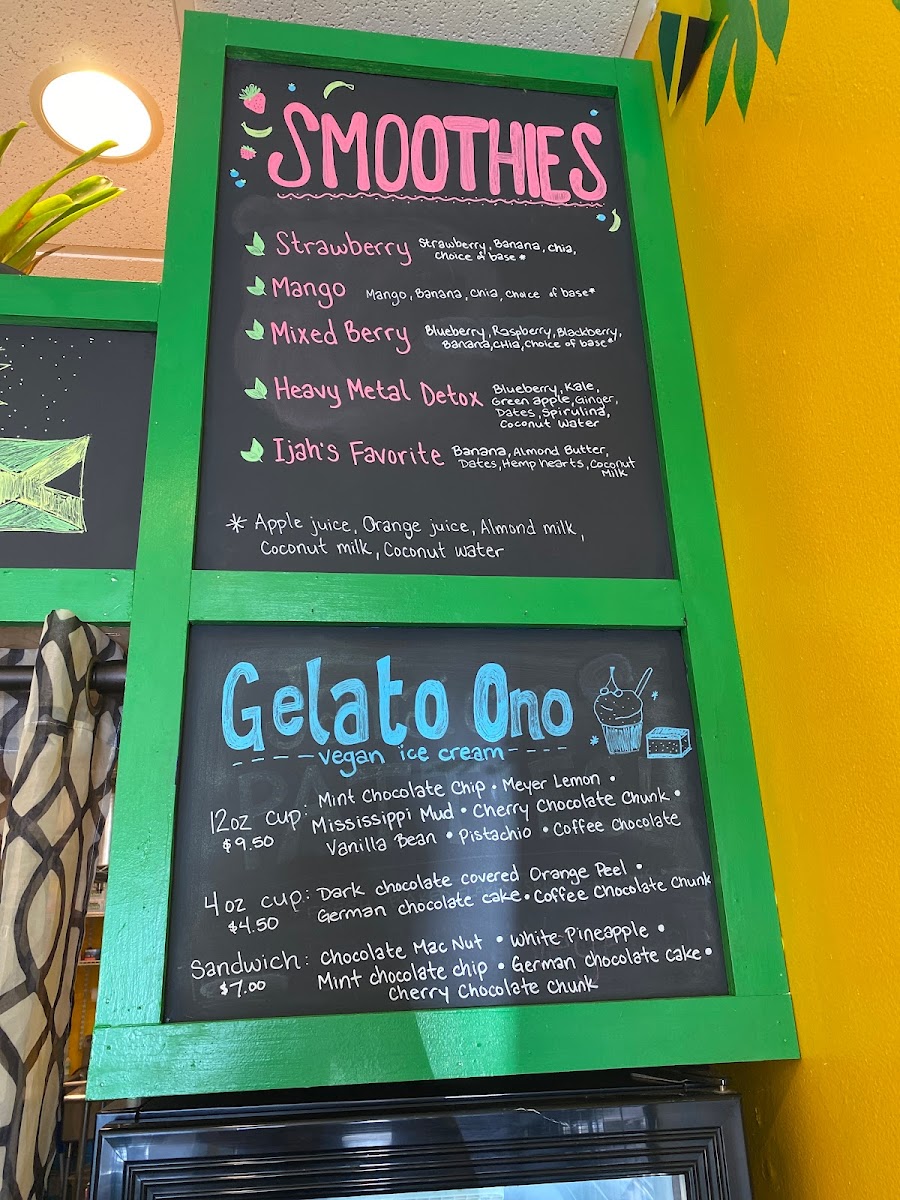 SMOOTHIES
Strawberry Strawberry, Banana, Chia,
Choice of base *
Mango Mango, Banana, Chia, Choice of base*
Mixed Berry Blueberry, Raspberry, Blackberry,
Banana, CHia, Choice of base*
Heavy Metal Detox Blueberry, Kale,
Green apple, Ginger,
Dates, Spirulina,
Coconut Water
Ijah's Favorite Banana, Almond Butter,
Dates, Hemp hearts, Coconut
Milk
* Apple juice, Orange juice, Almond milk,
Coconut milk, Coconut water
Gelato Ono
vegan ice cream
12oz cup: Mint Chocolate Chip • Meyer Lemon •
$9.50 Mississippi Mud • Cherry Chocolate Chunk •
Vanilla Bean • Pistachio • Coffee Chocolate
4oz cup: Dark chocolate covered Orange Peel •
$4.50 German chocolate cake • Coffee Chocolate Chunk
Sandwich: Chocolate Mac Nut • White Pineapple •
$7.00 Mint chocolate chip • German chocolate cake •
Cherry Chocolate Chunk